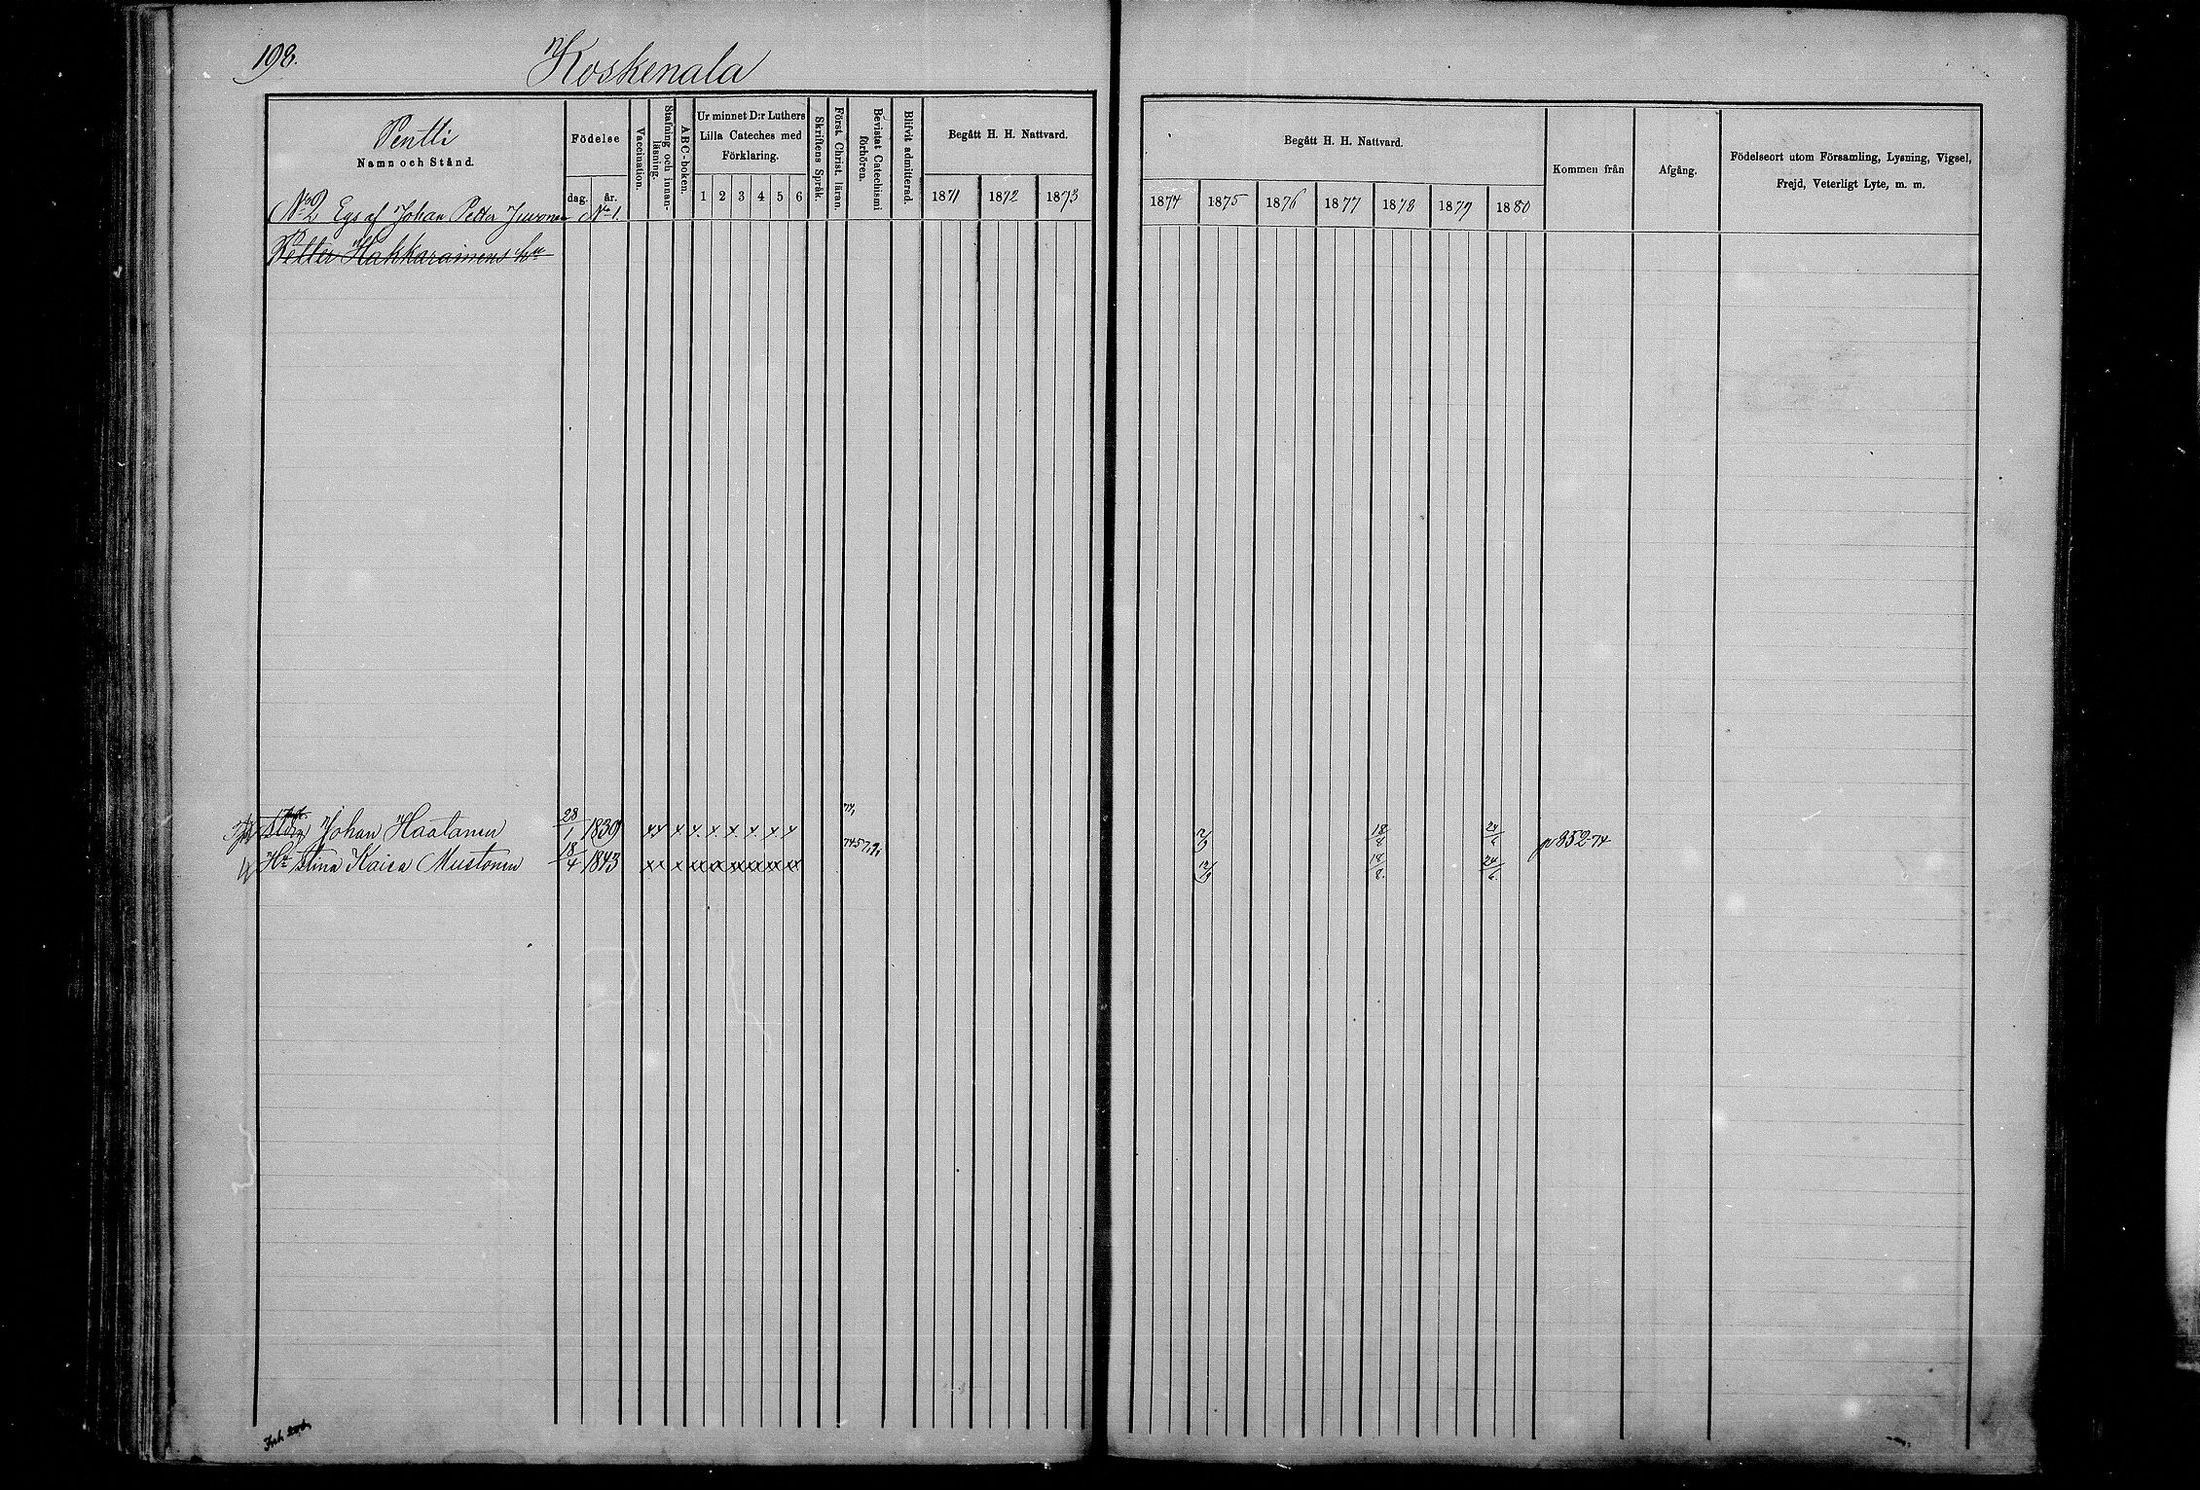 198.
Koskenala
Pentti
Namn och Stånd.
Födelse
dag. år.
Vaccination.
Stafning och innan-
läsning.
ABC-boken
Ur minnet D:r Luthers
Lilla Cateches med
Förklaring.
1 2 3 4 5 6
Skriftens Språk.
Först. Christ. läran.
Bevistat Catechismi
förhören.
Blifvit admitterad.
Begått H. H. Nattvard.
1871 1872 1873
Begått H. H. Nattvard.
1874 1875 1876 1877 1878 1879 1880
Kommen från
Afgång.
Födelseort utom Församling, Lysning, Vigsel,
Frejd, Veterligt Lyte, m. m.
No 2 Egs af Johan Petter Juvonen No 1.
Petter Hakkarainens
74,
Johan Haatanen 28/1 1839 xx x x x x x x x 2/9 18/8 24/6 p 352 74
Hu Stina Kaisa Mustonen 18/4 1843 xx x xx xx xx xx xx xx 7457,9, 12/9 18/8. 24/6.